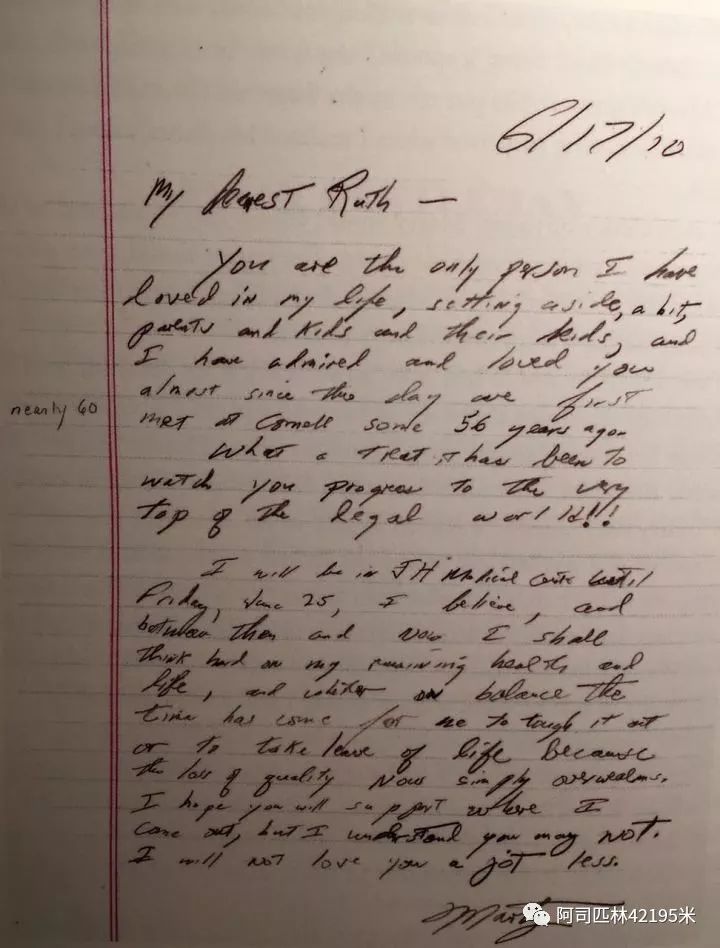 6/17/10
My dearest Ruth —
You are the only person I have
loved in my life, setting aside, a bit,
parents and kids and their kids, and
I have admired and loved you
almost since the day we first
nearly 60
met at Cornell some 56 years ago.
What a treat it has been to
watch you progress to the very
top of the legal world!!
I will be in JH Medical Center until
Friday, June 25, I believe, and
between then and now I shall
think hard on my remaining health and
life, and whether on balance the
time has come for me to tough it out
or to take leave of life because
the loss of quality now simply overwhelms.
I hope you will support where I
come out, but I understand you may not.
I will not love you a jot less.
Marty
阿司匹林42195米